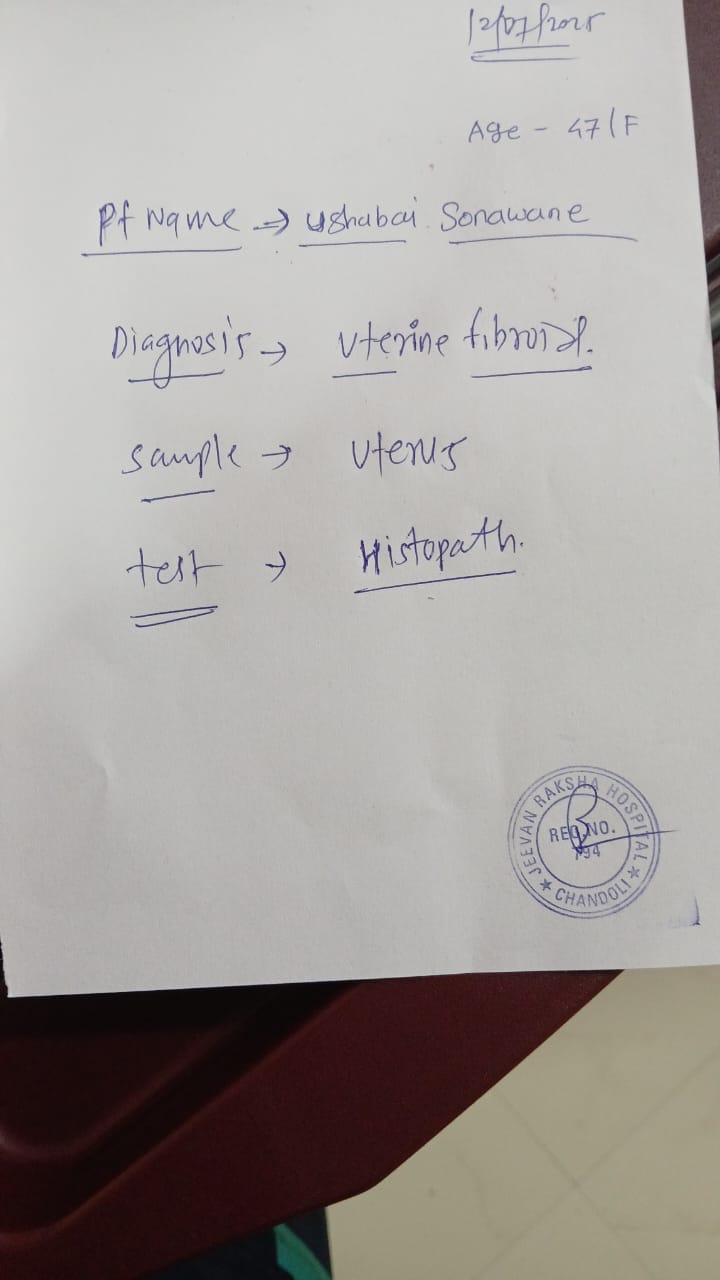 12/07/2025
Age - 47/F
Pt Name → Ushabai Sonawane
Diagnosis → Uterine fibroid.
Sample → Uterus
test → Histopath.
JEEVAN RAKSHA HOSPITAL
REG.NO.
794
★ CHANDOLI ★